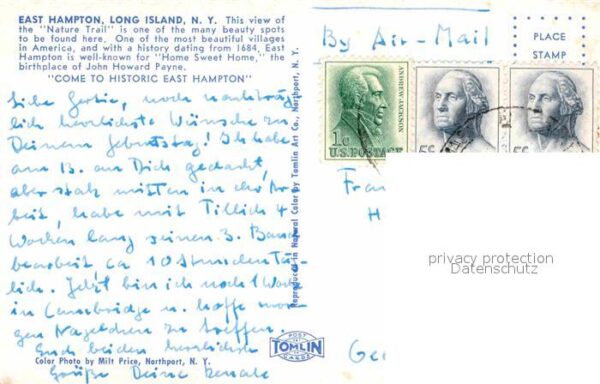 EAST HAMPTON, LONG ISLAND, N. Y. This view of
the "Nature Trail" is one of the many beauty spots
to be found here. One of the most beautiful villages
in America, and with a history dating from 1684, East
Hampton is well-known for "Home Sweet Home," the
birthplace of John Howard Payne.
"COME TO HISTORIC EAST HAMPTON"
By Air-Mail
PLACE
STAMP
ANDREW JACKSON
1c
U.S. POSTAGE
5c
5c
Liebe noch nachträg
lich herzlichste Wünsche zu
Deinem Geburtstag! Ich habe
am 13. an Dich gedacht,
aber stak mitten in der Ar
beit, habe mit Tillich 4
Wochen lang seinen 3. Band
bearbeitet ca 10 Stunden täg
lich. Jetzt bin ich noch 1 Woche
in Cambridge u. hoffe mor
gen zu treffen.
Euch beiden herzlichste
Grüße Deine Renate
Fran
H
Ge
Reproduced in Natural Color by Tomlin Art Co., Northport, N. Y.
privacy protection
Datenschutz
POST
TOMLIN
CARDS
Color Photo by Milt Price, Northport, N. Y.